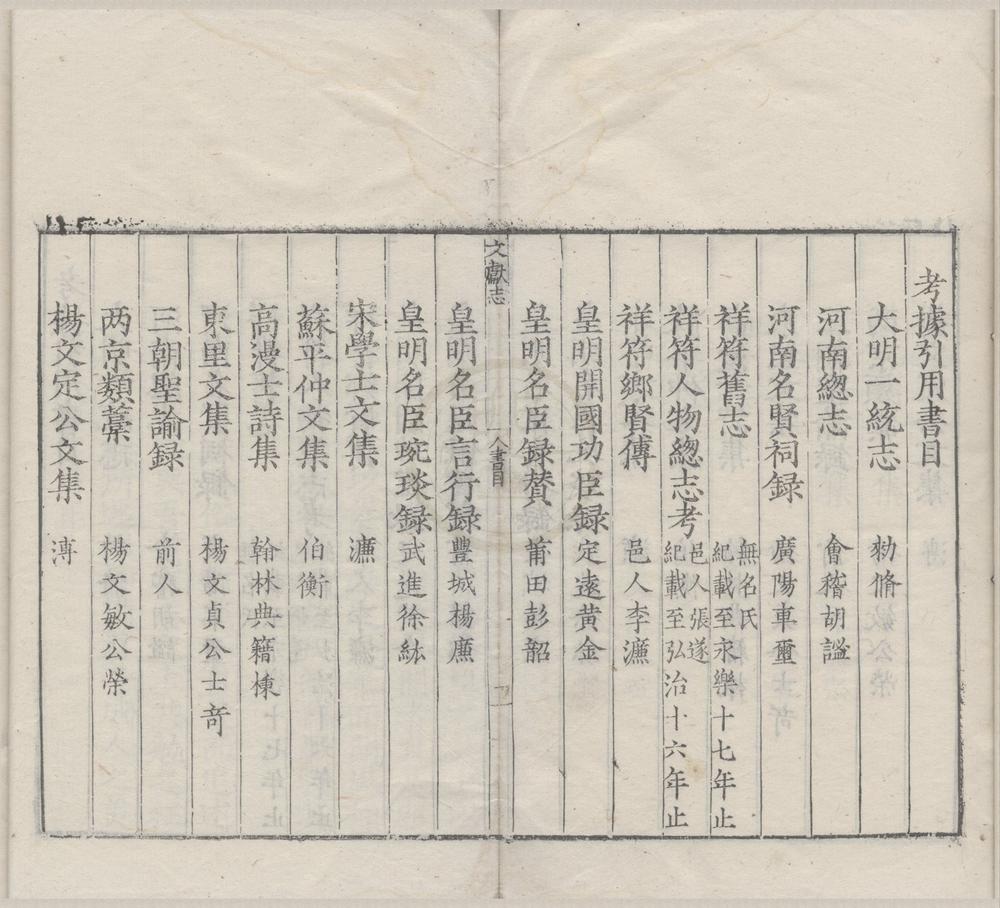 考據引用書目
大明一統志　勑脩
河南緫志　會稽胡謐
河南名賢祠録　廣陽車璽
祥符舊志　無名氏
紀載至永樂十七年止
祥符人物緫志考　邑人張遂
紀載至弘治十六年止
祥符鄉賢傳　邑人李濂
皇明開國功臣録　定逺黄金
皇明名臣録賛　莆田彭韶
文獻志　人書目　一
皇明名臣言行録　豐城楊廉
皇明名臣琬琰録　武進徐紘
宋學士文集　濂
蘇平仲文集　伯衡
高漫士詩集　翰林典籍棅
東里文集　楊文貞公士竒
三朝聖諭録　前人
两京類藁　楊文敏公榮
楊文定公文集　溥